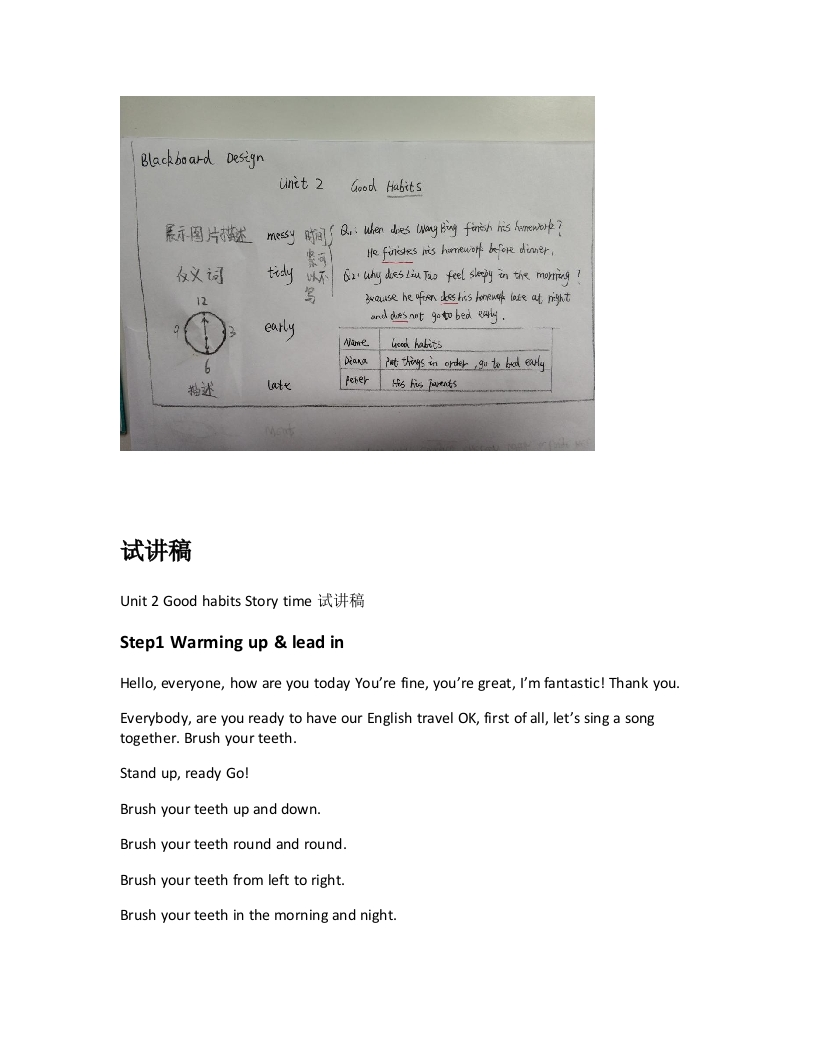 Blackboard Design
Unit 2 Good Habits
展示图片描述 messy
反义词 tidy
12
9 3
6
描述
early
late
时间
紧可
以不
写
Q1: When does Wang Bing finish his homework?
He finishes his homework before dinner.
Q2: Why does Liu Tao feel sleepy in the morning?
Because he often does his homework late at night
and does not go to bed early.
Name Good habits
Diana Put things in order, go to bed early
Peter his parents
试讲稿
Unit 2 Good habits Story time 试讲稿
Step1 Warming up & lead in
Hello, everyone, how are you today You’re fine, you’re great, I’m fantastic! Thank you.
Everybody, are you ready to have our English travel OK, first of all, let’s sing a song
together. Brush your teeth.
Stand up, ready Go!
Brush your teeth up and down.
Brush your teeth round and round.
Brush your teeth from left to right.
Brush your teeth in the morning and night.